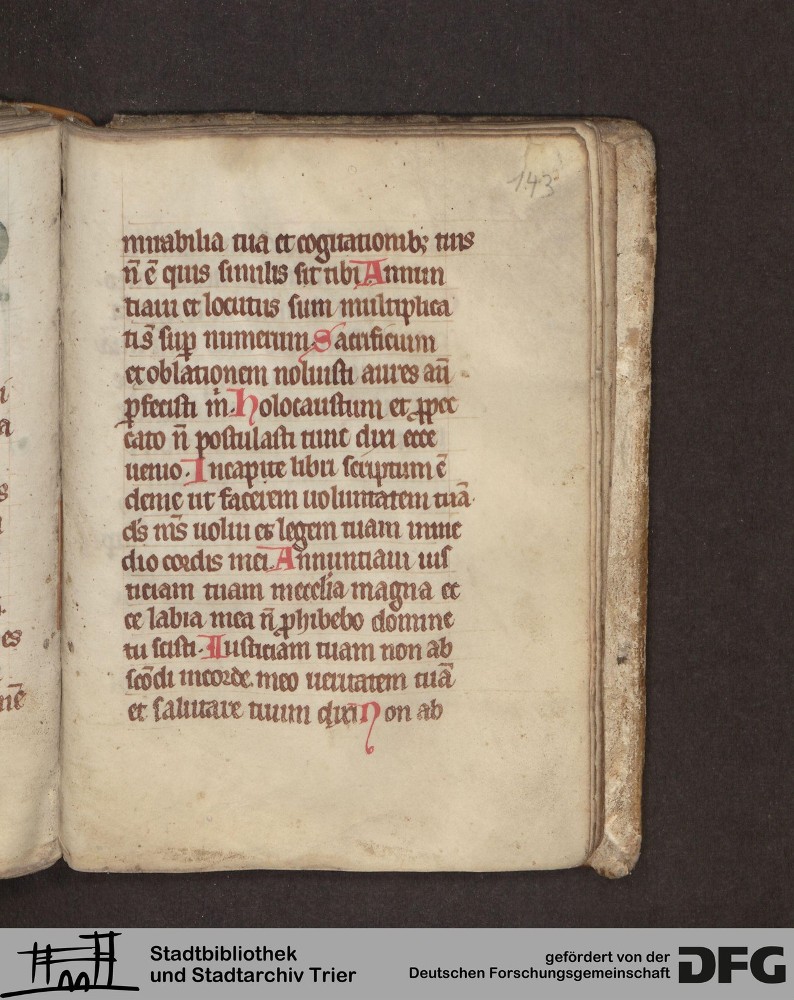 143
mirabilia tua et cogitationibꝫ tuis
n̄ ē quis similis sit tibi Annun
tiaui et locutus sum multiplica
ti s̄ suꝑ numerum. Sacrificium
et oblationem noluisti aures aū
ꝑfecisti m̄. Holocaustum et ꝓ pec
cato n̄ postulasti tunc dixi ecce
uenio. Incapite libri scriptum ē
deme ut facerem uoluntatem tuā.
ds̄ ms̄ uolui et legem tuam inme
dio cordis mei. Annuntiaui ius
ticiam tuam ineccl̄ia magna ec
ce labia mea n̄ ꝓhibebo domine
tu scisti. Iusticiam tuam non ab
scōdi incorde meo ueritatem tuā
et salutare tuum dixi Non ab
i
a
s
es
nē
Stadtbibliothek
und Stadtarchiv Trier
gefördert von der
Deutschen Forschungsgemeinschaft
DFG